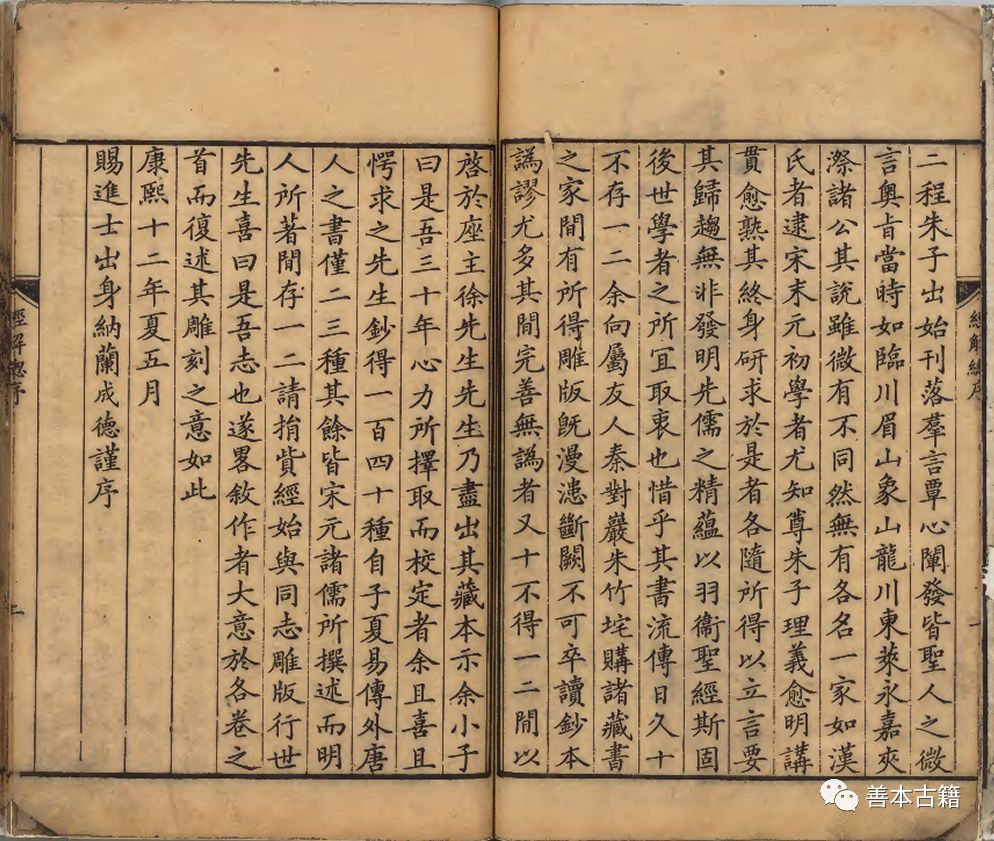 二程朱子出始刊落羣言覃心闡發皆聖人之微
言奧旨當時如臨川眉山象山龍川東萊永嘉夾
漈諸公其說雖微有不同然無有各名一家如漢
氏者逮宋末元初學者尤知尊朱子理義愈明講
貫愈熟其終身研求於是者各隨所得以立言要
其歸趨無非發明先儒之精蘊以羽衛聖經斯固
後世學者之所宜取衷也惜乎其書流傳日久十
不存一二余向屬友人秦對巖朱竹垞購諸藏書
之家間有所得雕版旣漫漶斷闕不可卒讀鈔本
譌謬尤多其間完善無譌者又十不得一二間以
啓於座主徐先生先生乃盡出其藏本示余小子
曰是吾三十年心力所擇取而校定者余且喜且
愕求之先生鈔得一百四十種自子夏易傳外唐
人之書僅二三種其餘皆宋元諸儒所撰述而明
人所著間存一二請捐貲經始與同志雕版行世
先生喜曰是吾志也遂畧敘作者大意於各卷之
首而復述其雕刻之意如此
康熙十二年夏五月
賜進士出身納蘭成德謹序
經解總序
一
經解總序
二
善本古籍